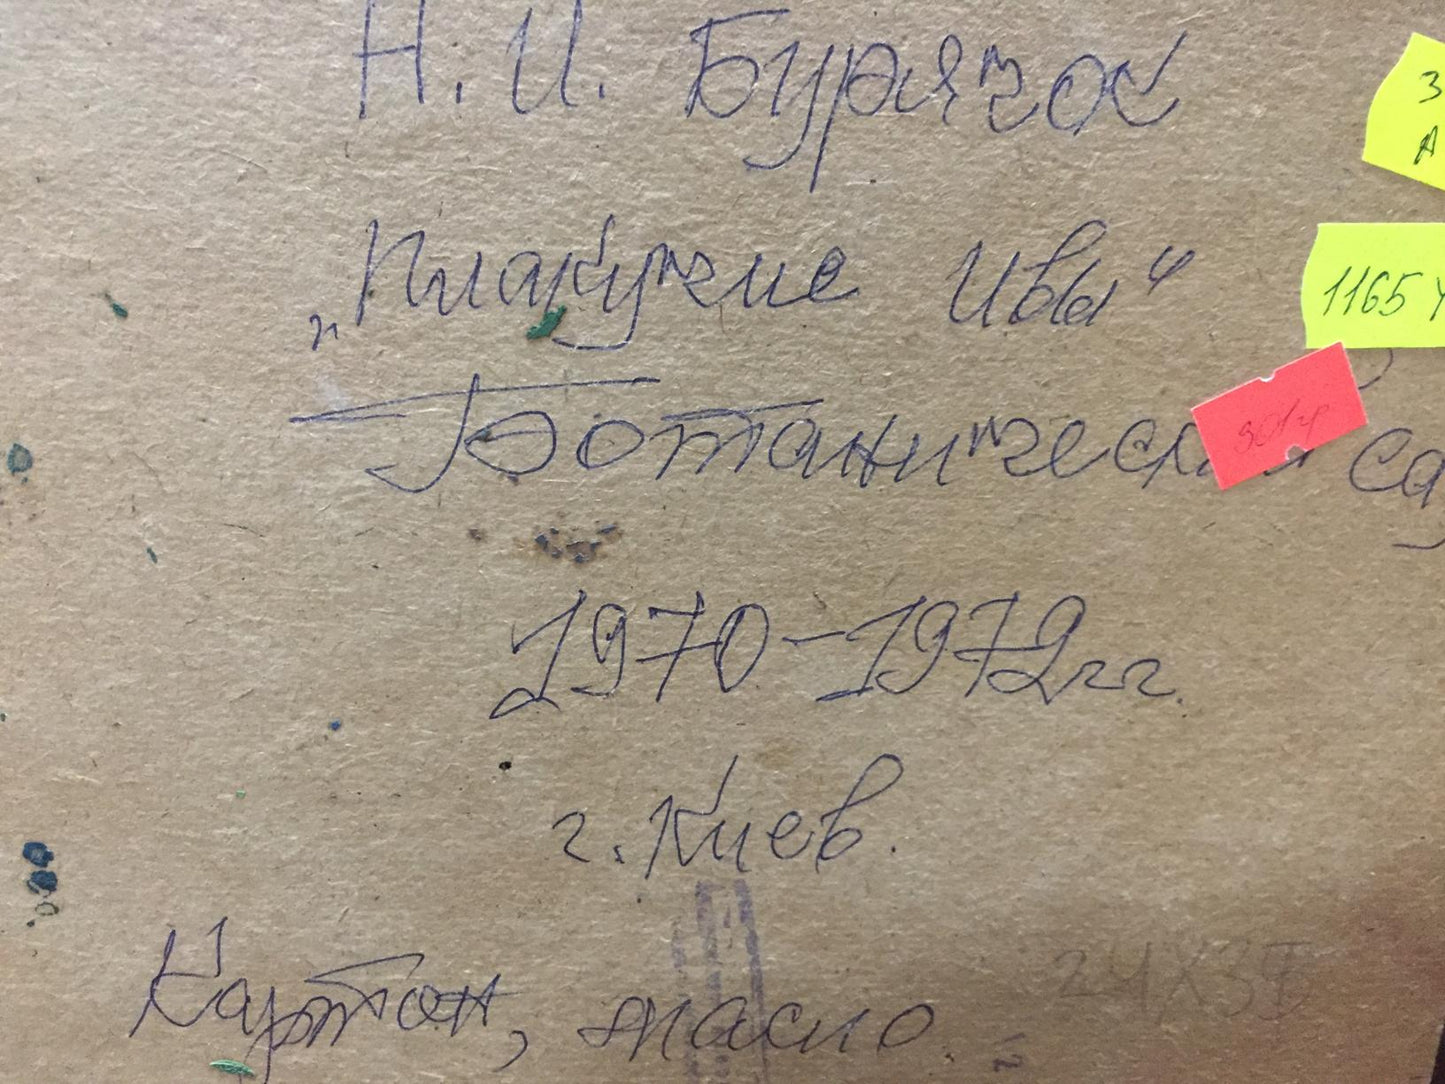 Н. И. Бурячок
„Плакучие ивы“
Ботанический са
1970-1972 гг.
г. Киев.
Картон, масло.
3
А
1165 У